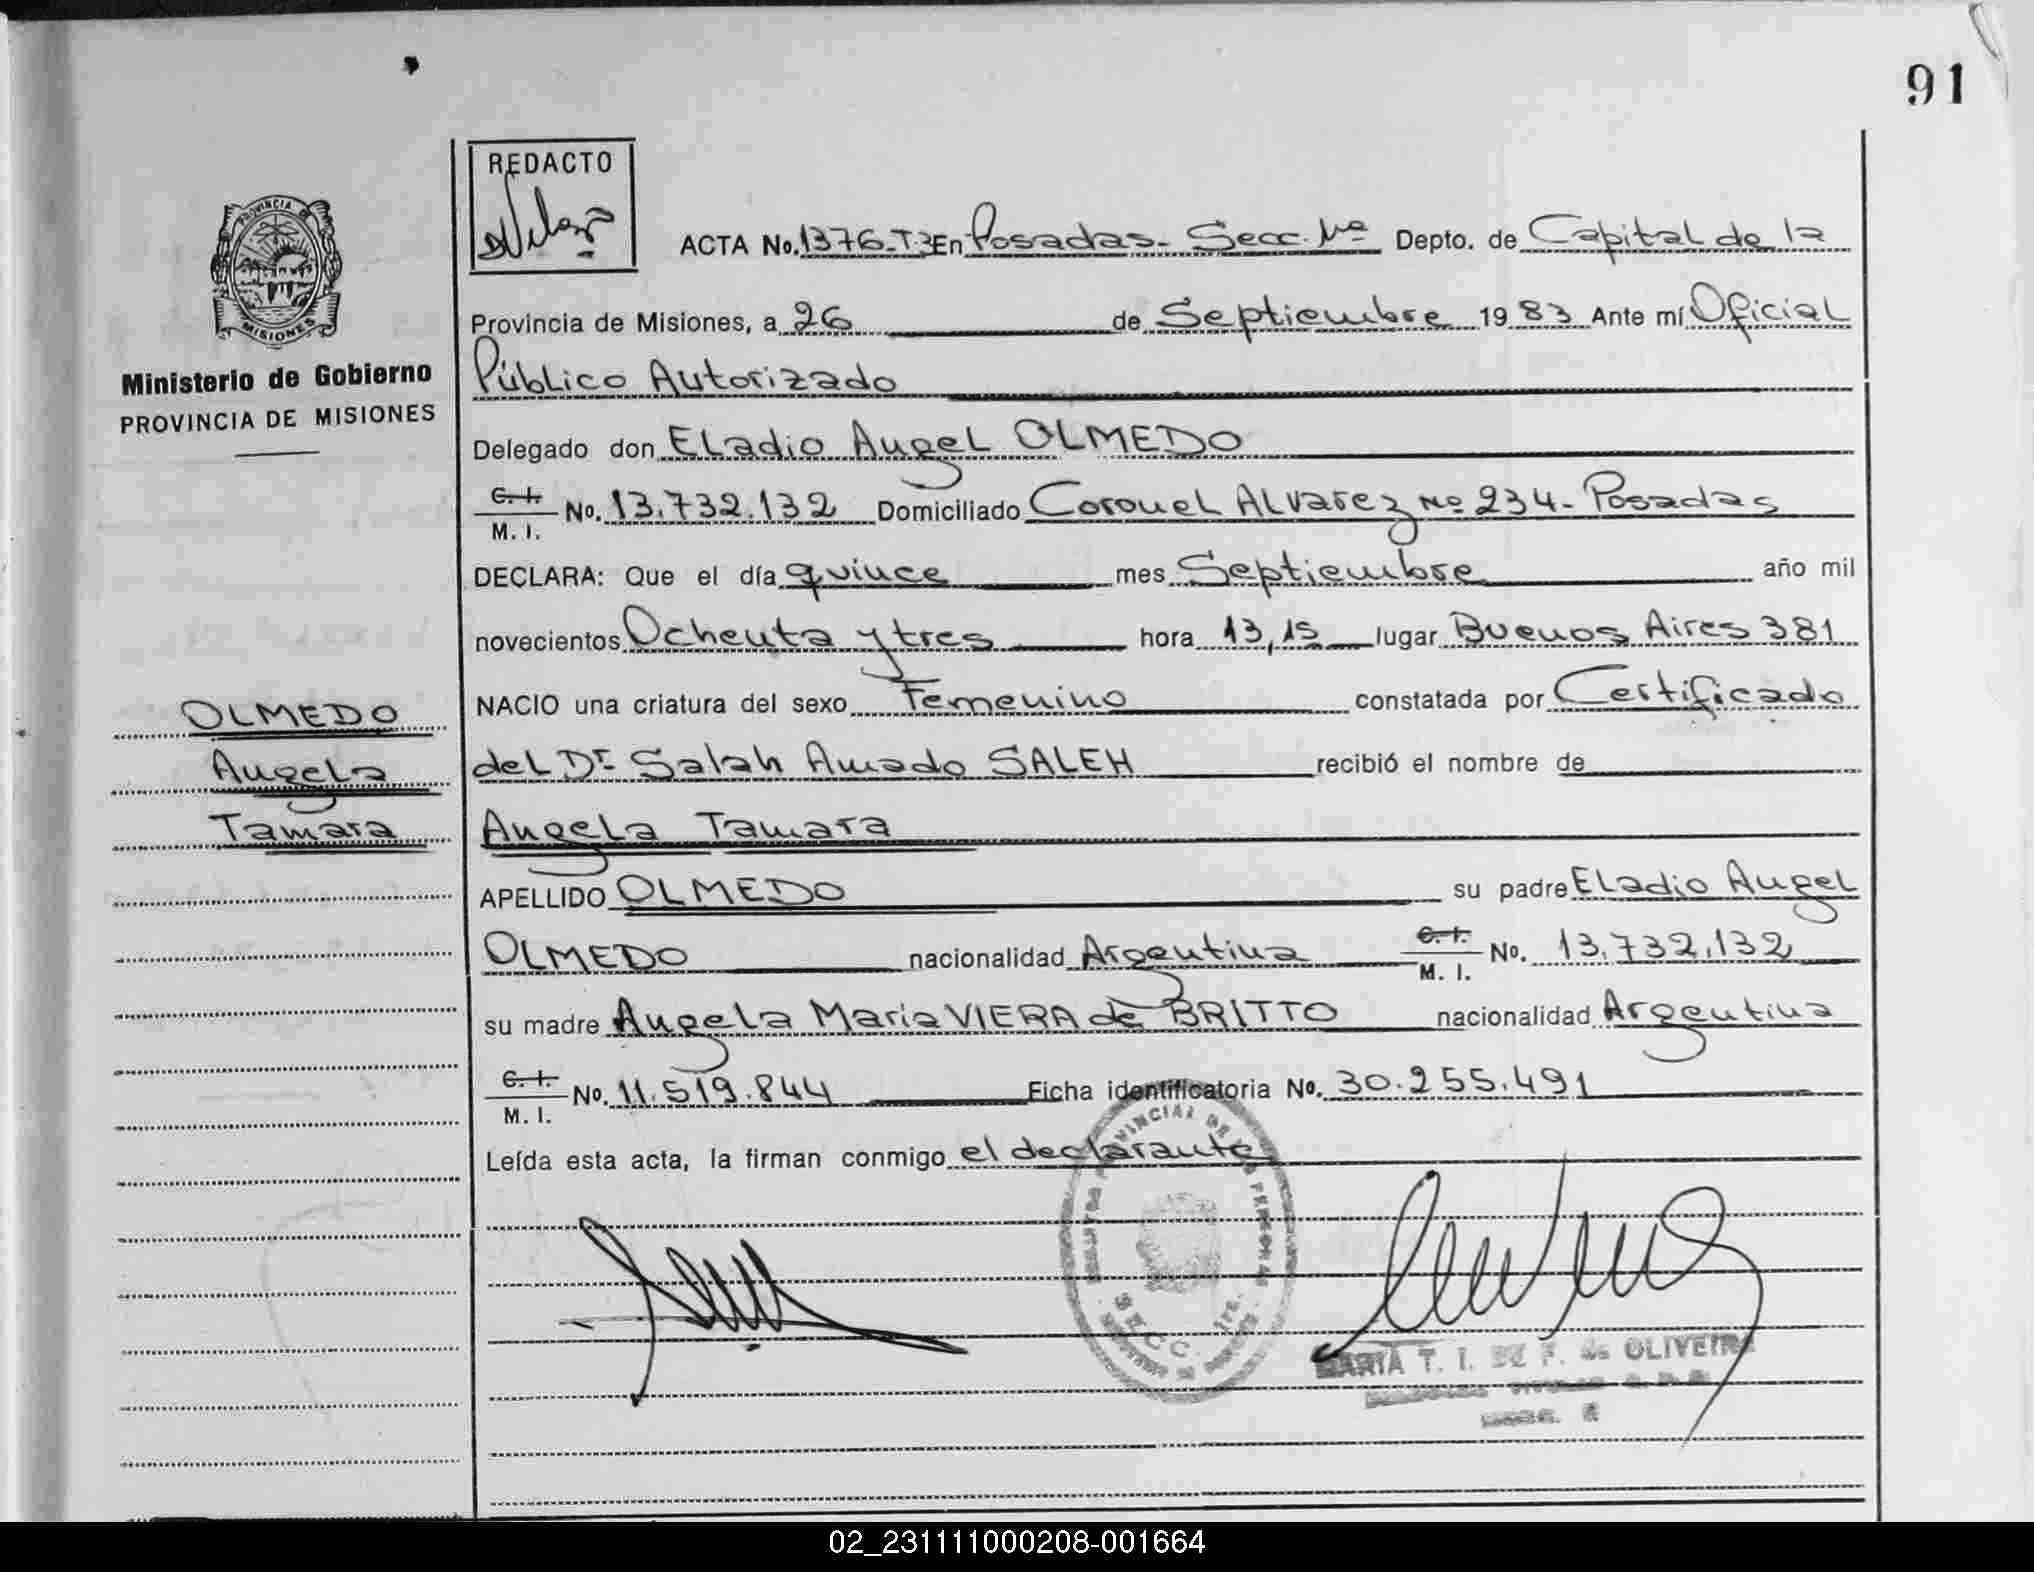 91
REDACTO
PROVINCIA DE
MISIONES
Ministerio de Gobierno
PROVINCIA DE MISIONES
ACTA No. 1376-T3 En Posadas- Secc. 1ra Depto. de Capital de la
Provincia de Misiones, a 26 de Septiembre 1983 Ante mí Oficial
Público Autorizado
Delegado don Eladio Angel OLMEDO
C. I. M. I. No. 13.732.132 Domiciliado Coronel Alvarez Nº 234- Posadas
DECLARA: Que el día quince mes Septiembre año mil
novecientos Ochenta y tres hora 13,15 lugar Buenos Aires 381
NACIO una criatura del sexo Femenino constatada por Certificado
del Dr Salah Amado SALEH recibió el nombre de
Angela Tamara
APELLIDO OLMEDO su padre Eladio Angel
OLMEDO nacionalidad Argentina C. I. M. I. No. 13.732.132
su madre Angela Maria VIERA de BRITTO nacionalidad Argentina
C. I. M. I. No. 11.519.844 Ficha identificatoria No. 30.255.491
Leída esta acta, la firman conmigo el declarante
OLMEDO
Angela
Tamara
PROVINCIAL DE LAS PERSONAS
SECC. 1ra.
MARIA T. I. DE F. de OLIVEIRA
02_231111000208-001664